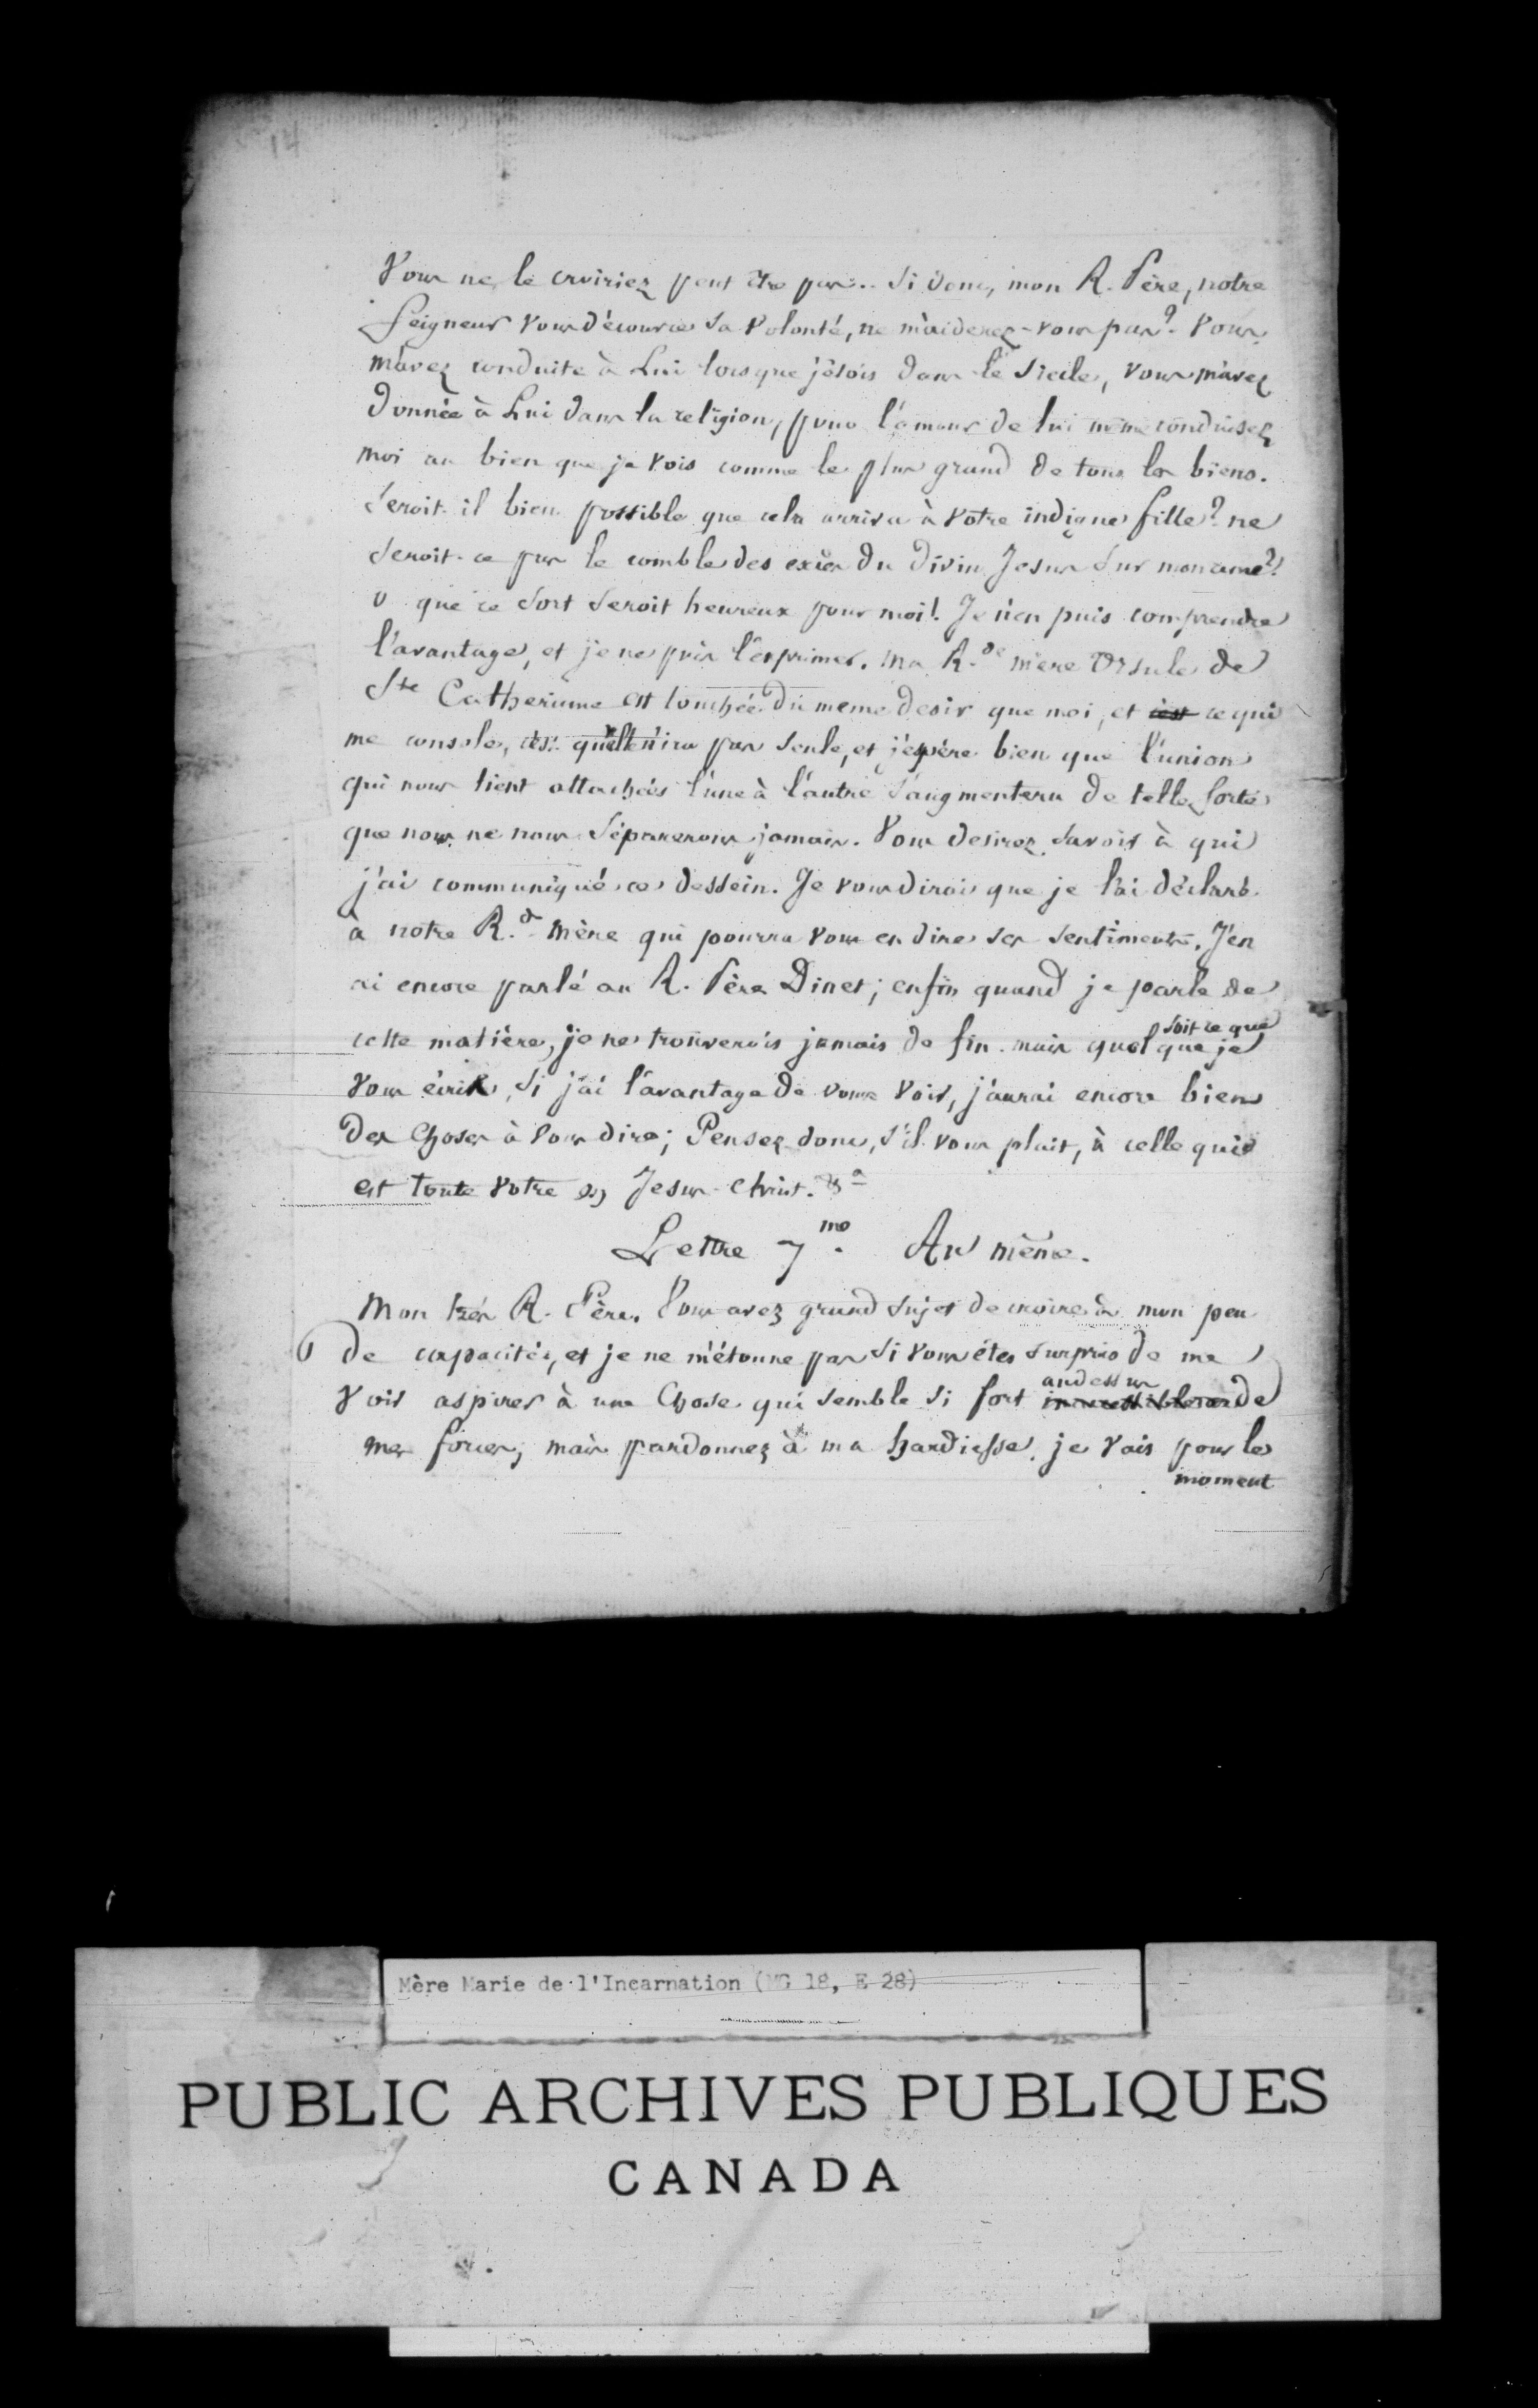 14
Vous ne le croiriez peut être pas.. Si donc, mon R. Père, notre
Seigneur vous découvre sa volonté, ne m'aiderez-vous pas? Vous
m'avez conduite à Lui lorsque j'étois dans le siecle, vous m'avez
donnée à Lui dans la religion, pour l'amour de lui même conduisez
moi au bien que je vois comme le plus grand de tous les biens.
Seroit-il bien possible que cela arriva à votre indigne fille? ne
seroit-ce pas le comble des excès du divin Jesus sur mon ame?!
o que ce sort seroit heureux pour moi! Je n'en puis comprendre
l'avantage, et je ne puis l'exprimer. Ma R.de mere Ursule de
Ste Catherinne est touchée du meme desir que moi, et c'est ce qui
me console, c'est qu'elle n'ira pas seule, et j'espère bien que l'union
qui nous tient attachées l'une à l'autre s'augmentera de telle sorte
que nous ne nous séparerons jamais. Vous desirez savoir à qui
j'ai communiqué ce dessein. Je vous dirai que je l'ai déclaré
à notre R.de mère qui pourra vous en dire ses sentiments. J'en
ai encore parlé au R. Père Dinet; enfin quand je parle de
cette matière, je ne trouverois jamais de fin. mais quel soit ce que que je
vous écrive, si j'ai l'avantage de vous voir, j'aurai encore bien
des choses à vous dire; Pensez donc, s'il vous plait, à celle qui
est toute votre en Jesus-Christ. &a
Lettre 7me. Au même.
Mon très R. Père. Vous avez grand sujet de croire à mon peu
de capacités, et je ne m'étonne pas si vous étes surpris de me
voir aspirer à une chose qui semble si fort audessus de
mes forces; mais pardonnez à ma hardiesse. je vais pour le
moment
Mère Marie de l'Incarnation (MG 18, E 28)
PUBLIC ARCHIVES PUBLIQUES
CANADA